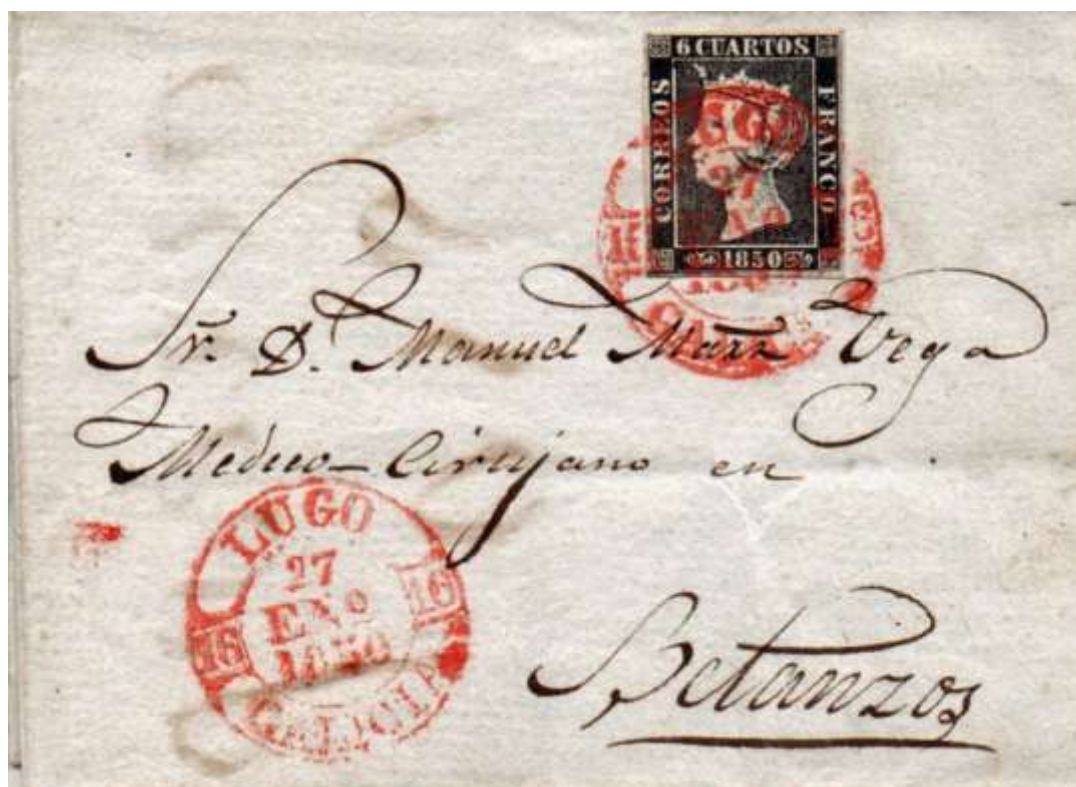 6 CUARTOS
CORREOS
FRANCO
1850
Sr. D. Manuel Marª Vega
Medico-Cirujano en
LUGO
27
ENº
1850
16
16
GALICIA
Betanzos